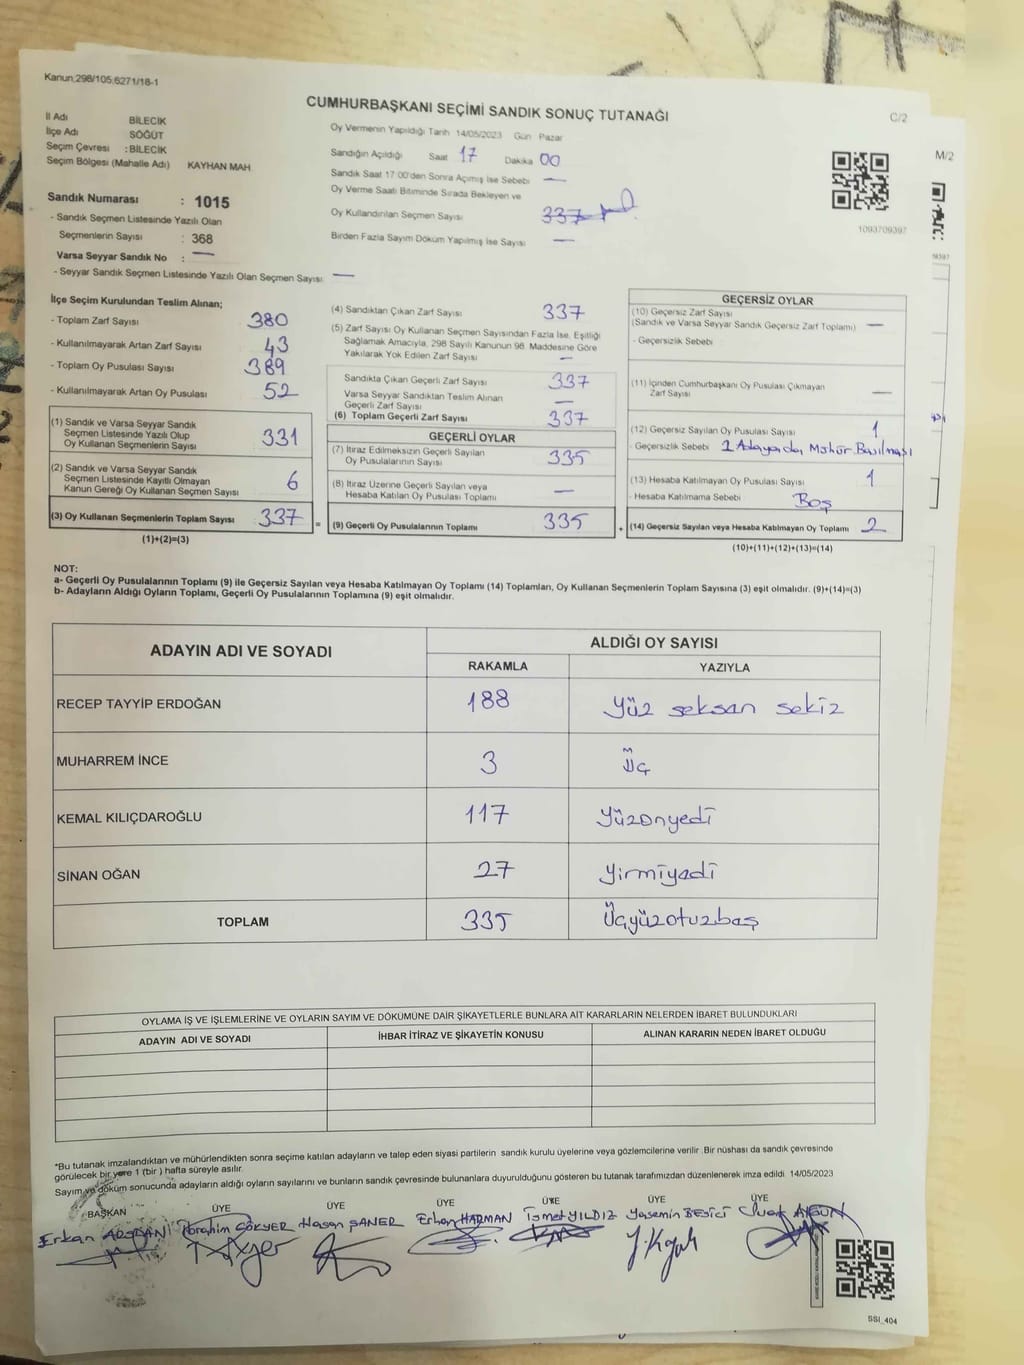 Kanun;298/105;6271/18-1
CUMHURBAŞKANI SEÇİMİ SANDIK SONUÇ TUTANAĞI
C/2
M/2
İl Adı BİLECİK
İlçe Adı SÖĞÜT
Seçim Çevresi :BİLECİK
Seçim Bölgesi (Mahalle Adı) KAYHAN MAH.
Sandık Numarası : 1015
- Sandık Seçmen Listesinde Yazılı Olan
Seçmenlerin Sayısı : 368
Varsa Seyyar Sandık No : —
- Seyyar Sandık Seçmen Listesinde Yazılı Olan Seçmen Sayısı: —
Oy Vermenin Yapıldığı Tarih 14/05/2023 Gün Pazar
Sandığın Açıldığı Saat 17 Dakika 00
Sandık Saat 17:00'den Sonra Açılmış İse Sebebi —
Oy Verme Saati Bitiminde Sırada Bekleyen ve
Oy Kullandırılan Seçmen Sayısı 337
Birden Fazla Sayım Döküm Yapılmış İse Sayısı —
1093709397
İlçe Seçim Kurulundan Teslim Alınan;
- Toplam Zarf Sayısı 380
- Kullanılmayarak Artan Zarf Sayısı 43
- Toplam Oy Pusulası Sayısı 389
- Kullanılmayarak Artan Oy Pusulası 52
(1) Sandık ve Varsa Seyyar Sandık
Seçmen Listesinde Yazılı Olup
Oy Kullanan Seçmenlerin Sayısı 331
(2) Sandık ve Varsa Seyyar Sandık
Seçmen Listesinde Kayıtlı Olmayan
Kanun Gereği Oy Kullanan Seçmen Sayısı 6
(3) Oy Kullanan Seçmenlerin Toplam Sayısı 337 =
(1)+(2)=(3)
(4) Sandıktan Çıkan Zarf Sayısı 337
(5) Zarf Sayısı Oy Kullanan Seçmen Sayısından Fazla İse, Eşitliği
Sağlamak Amacıyla, 298 Sayılı Kanunun 98. Maddesine Göre
Yakılarak Yok Edilen Zarf Sayısı —
Sandıkta Çıkan Geçerli Zarf Sayısı 337
Varsa Seyyar Sandıktan Teslim Alınan
Geçerli Zarf Sayısı —
(6) Toplam Geçerli Zarf Sayısı 337
GEÇERLİ OYLAR
(7) İtiraz Edilmeksizin Geçerli Sayılan
Oy Pusulalarının Sayısı 335
(8) İtiraz Üzerine Geçerli Sayılan veya
Hesaba Katılan Oy Pusulası Toplamı —
(9) Geçerli Oy Pusulalarının Toplamı 335 +
GEÇERSİZ OYLAR
(10) Geçersiz Zarf Sayısı
(Sandık ve Varsa Seyyar Sandık Geçersiz Zarf Toplamı) —
- Geçersizlik Sebebi
(11) İçinden Cumhurbaşkanı Oy Pusulası Çıkmayan
Zarf Sayısı —
(12) Geçersiz Sayılan Oy Pusulası Sayısı 1
- Geçersizlik Sebebi 2 Adayında Mühür Basılması
(13) Hesaba Katılmayan Oy Pusulası Sayısı 1
- Hesaba Katılmama Sebebi Boş
(14) Geçersiz Sayılan veya Hesaba Katılmayan Oy Toplamı 2
(10)+(11)+(12)+(13)=(14)
NOT:
a- Geçerli Oy Pusulalarının Toplamı (9) ile Geçersiz Sayılan veya Hesaba Katılmayan Oy Toplamı (14) Toplamları, Oy Kullanan Seçmenlerin Toplam Sayısına (3) eşit olmalıdır. (9)+(14)=(3)
b- Adayların Aldığı Oyların Toplamı, Geçerli Oy Pusulalarının Toplamına (9) eşit olmalıdır.
ADAYIN ADI VE SOYADI ALDIĞI OY SAYISI
RAKAMLA YAZIYLA
RECEP TAYYİP ERDOĞAN 188 Yüz seksan sekiz
MUHARREM İNCE 3 Üç
KEMAL KILIÇDAROĞLU 117 Yüzonyedi
SİNAN OĞAN 27 Yirmiyedi
TOPLAM 335 Üçyüzotuzbeş
OYLAMA İŞ VE İŞLEMLERİNE VE OYLARIN SAYIM VE DÖKÜMÜNE DAİR ŞİKAYETLERLE BUNLARA AİT KARARLARIN NELERDEN İBARET BULUNDUKLARI
ADAYIN ADI VE SOYADI İHBAR İTİRAZ VE ŞİKAYETİN KONUSU ALINAN KARARIN NEDEN İBARET OLDUĞU
*Bu tutanak imzalandıktan ve mühürlendikten sonra seçime katılan adayların ve talep eden siyasi partilerin sandık kurulu üyelerine veya gözlemcilerine verilir .Bir nüshası da sandık çevresinde
görülecek bir yere 1 (bir ) hafta süreyle asılır.
Sayım ve döküm sonucunda adayların aldığı oyların sayılarını ve bunların sandık çevresinde bulunanlara duyurulduğunu gösteren bu tutanak tarafımızdan düzenlenerek imza edildi. 14/05/2023
BAŞKAN ÜYE ÜYE ÜYE ÜYE ÜYE ÜYE
Erkan İbrahim GÖKYER Hasan ŞANER Erhan HARMAN İsmet YILDIZ Yasemin BESİCİ Suat AYGÜN
SSI_404